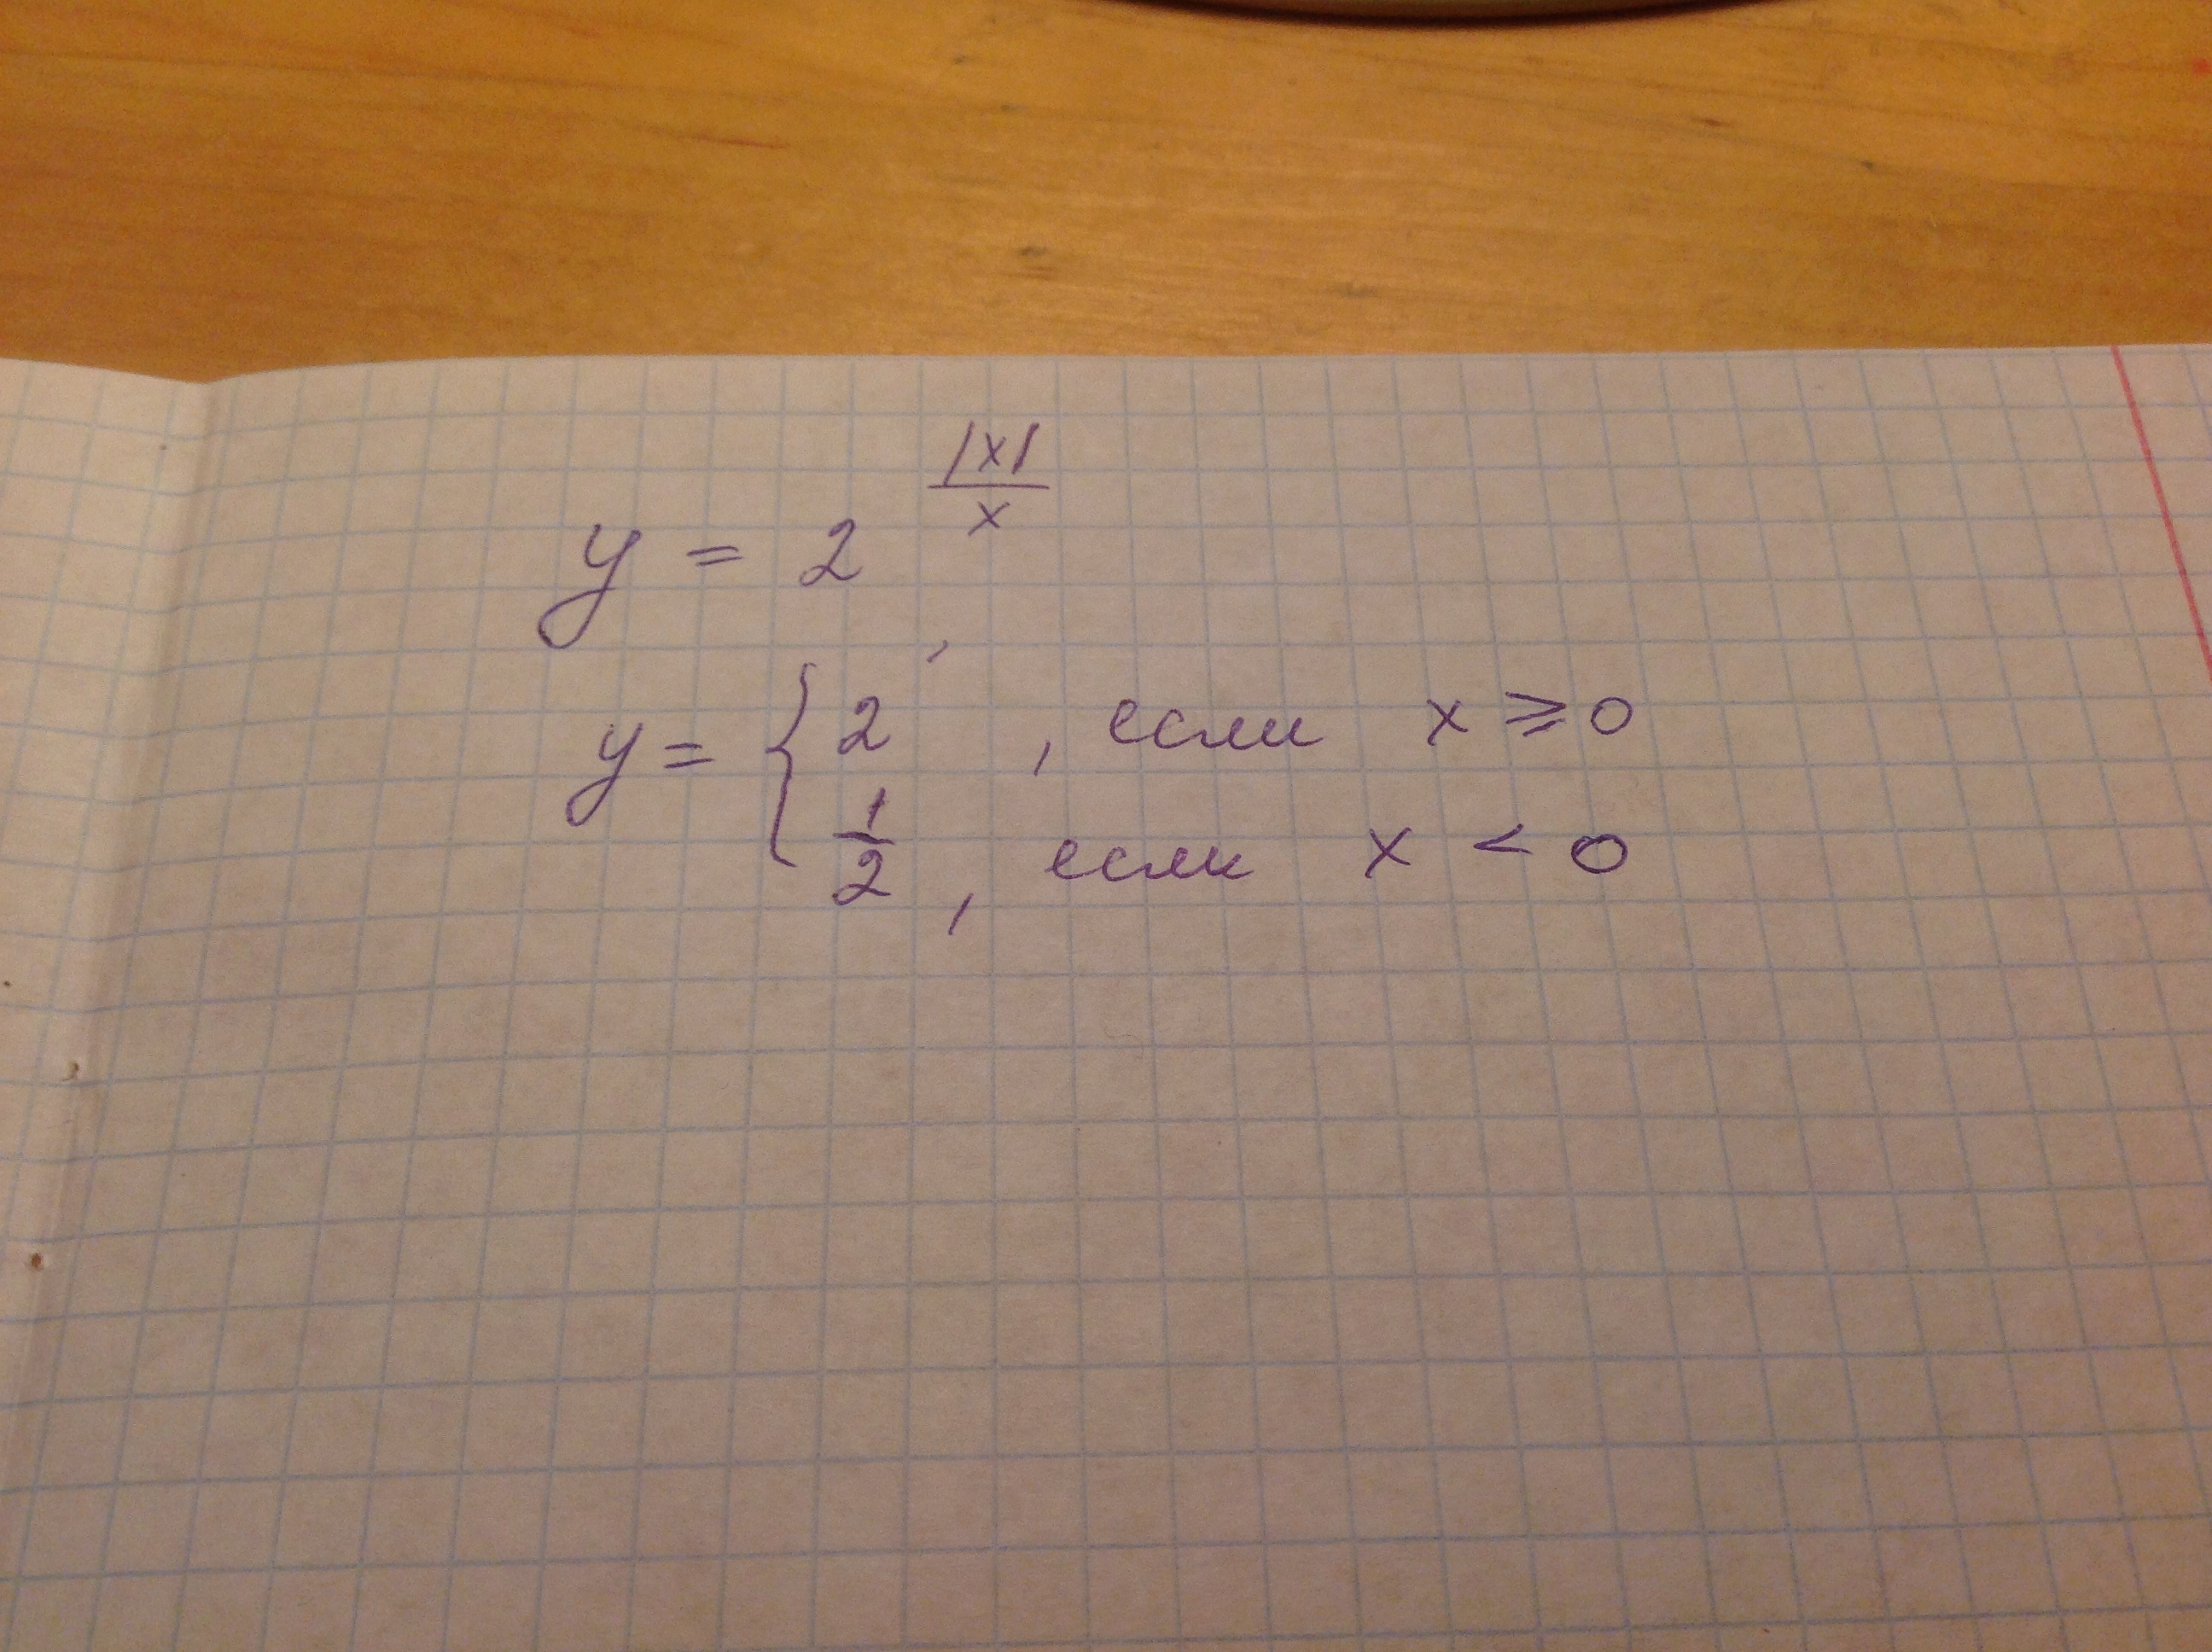 y = 2^{\frac{|x|}{x}}
,
y = { 2 , если x ⩾ 0
\frac{1}{2} , если x < 0